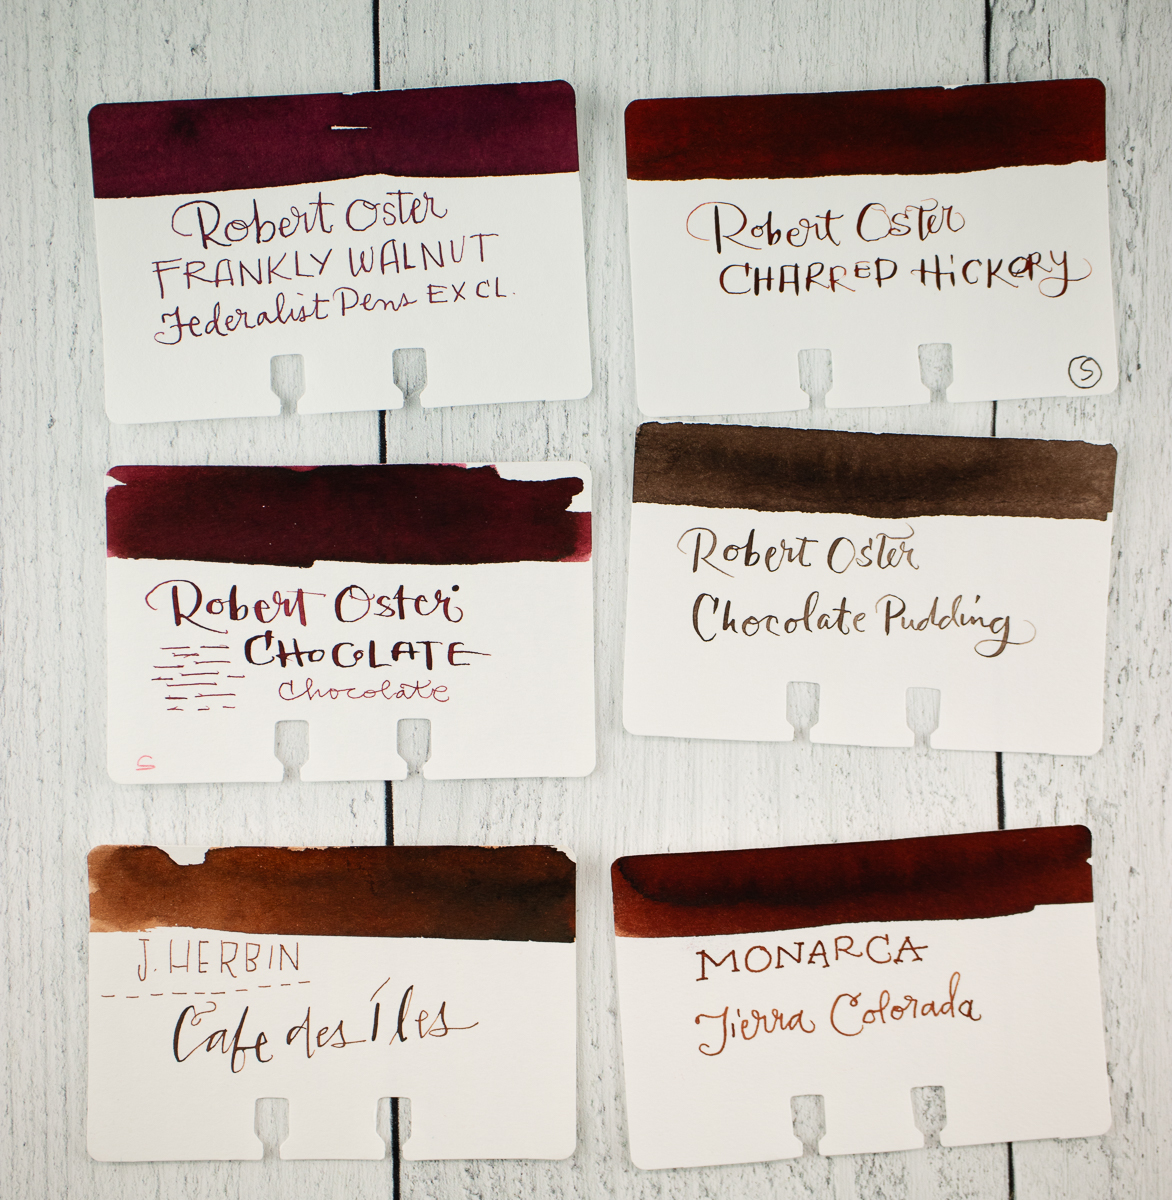 Robert Oster
FRANKLY WALNUT
Federalist Pens EXCL.
Robert Oster
CHARRED HICKORY
S
Robert Oster
CHOCOLATE
Chocolate
S
Robert Oster
Chocolate Pudding
J. HERBIN
Cafe des Íles
MONARCA
Tierra Colorada